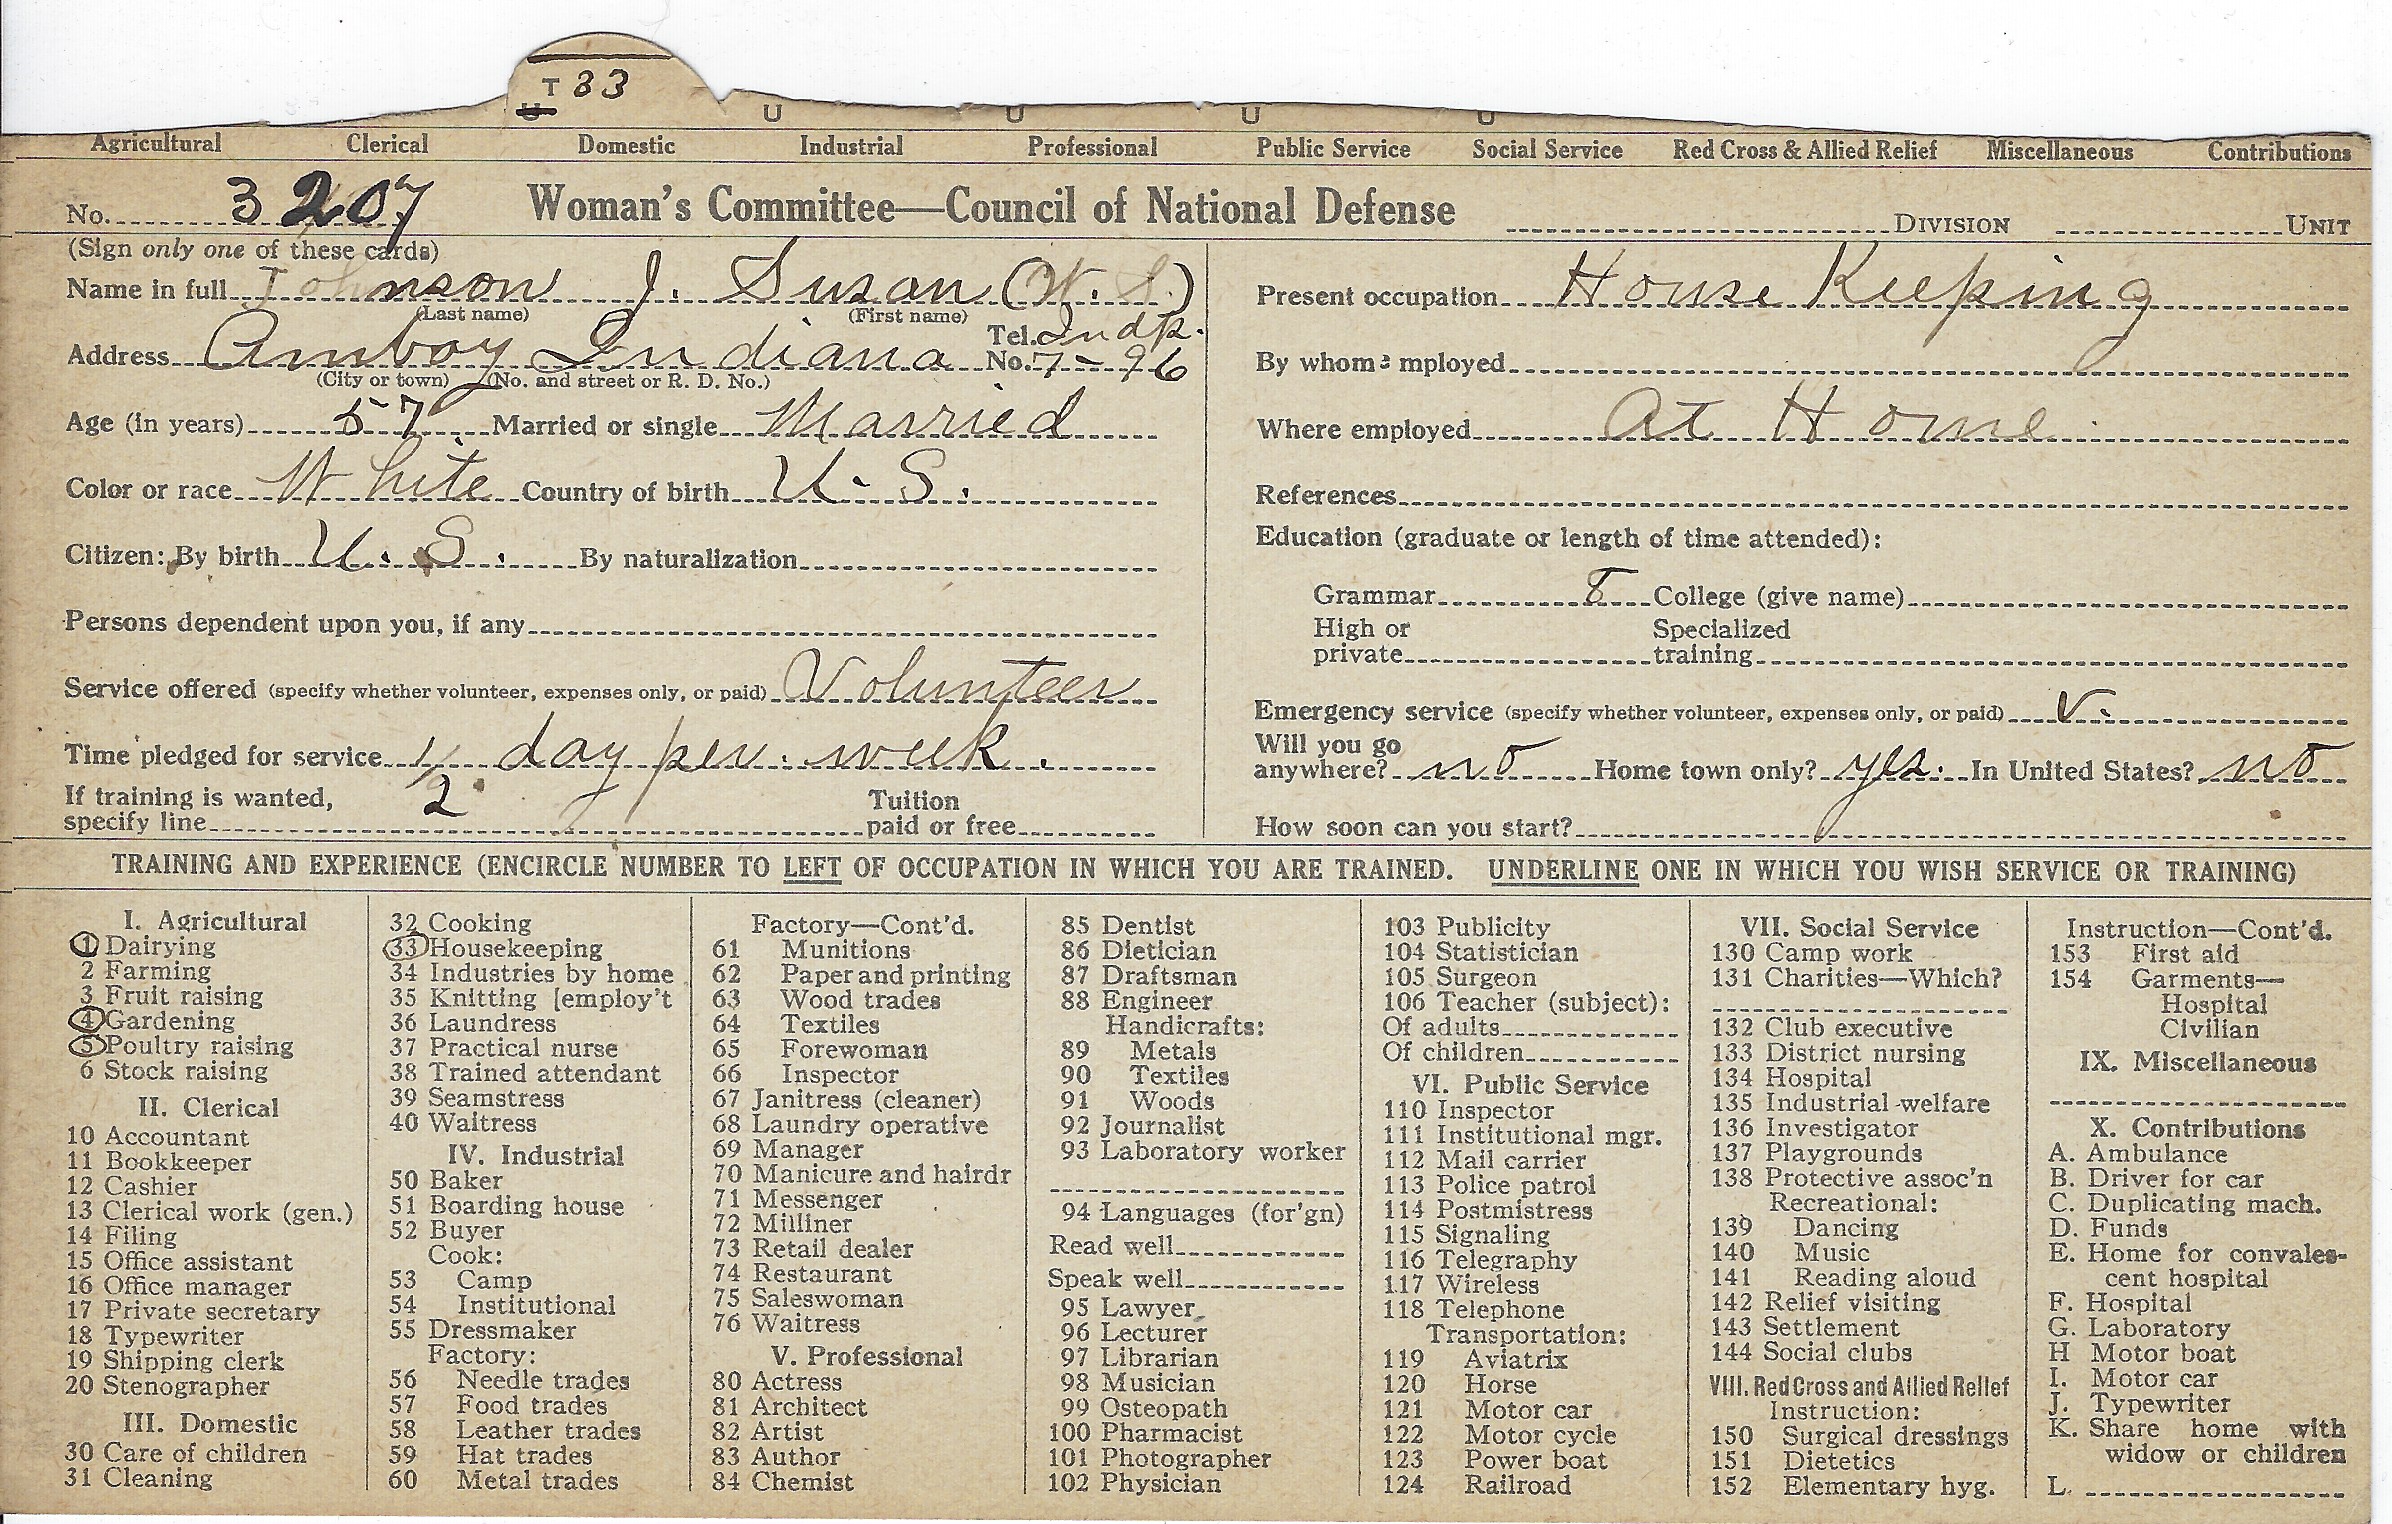 T 33
U U U U U
Agricultural Clerical Domestic Industrial Professional Public Service Social Service Red Cross & Allied Relief Miscellaneous Contributions
No. 3207 Woman's Committee—Council of National Defense DIVISION UNIT
(Sign only one of these cards)
Name in full Johnson J. Susan (W. S.)
(Last name) (First name)
Address Amboy Indiana Tel. No. Indp. 7-96
(City or town) (No. and street or R. D. No.)
Age (in years) 57 Married or single Married
Color or race White Country of birth U. S.
Citizen: By birth U. S. By naturalization
Persons dependent upon you, if any
Service offered (specify whether volunteer, expenses only, or paid) Volunteer
Time pledged for service 1/2 day per week.
If training is wanted,
specify line
Tuition
paid or free
Present occupation House Keeping
By whom employed
Where employed At Home
References
Education (graduate or length of time attended):
Grammar 8 College (give name)
High or
private
Specialized
training
Emergency service (specify whether volunteer, expenses only, or paid) V.
Will you go
anywhere? no Home town only? yes. In United States? no
How soon can you start?
TRAINING AND EXPERIENCE (ENCIRCLE NUMBER TO LEFT OF OCCUPATION IN WHICH YOU ARE TRAINED. UNDERLINE ONE IN WHICH YOU WISH SERVICE OR TRAINING)
I. Agricultural
1 Dairying
2 Farming
3 Fruit raising
4 Gardening
5 Poultry raising
6 Stock raising
II. Clerical
10 Accountant
11 Bookkeeper
12 Cashier
13 Clerical work (gen.)
14 Filing
15 Office assistant
16 Office manager
17 Private secretary
18 Typewriter
19 Shipping clerk
20 Stenographer
III. Domestic
30 Care of children
31 Cleaning
32 Cooking
33 Housekeeping
34 Industries by home
35 Knitting [employ't
36 Laundress
37 Practical nurse
38 Trained attendant
39 Seamstress
40 Waitress
IV. Industrial
50 Baker
51 Boarding house
52 Buyer
Cook:
53 Camp
54 Institutional
55 Dressmaker
Factory:
56 Needle trades
57 Food trades
58 Leather trades
59 Hat trades
60 Metal trades
Factory—Cont'd.
61 Munitions
62 Paper and printing
63 Wood trades
64 Textiles
65 Forewoman
66 Inspector
67 Janitress (cleaner)
68 Laundry operative
69 Manager
70 Manicure and hairdr
71 Messenger
72 Milliner
73 Retail dealer
74 Restaurant
75 Saleswoman
76 Waitress
V. Professional
80 Actress
81 Architect
82 Artist
83 Author
84 Chemist
85 Dentist
86 Dietician
87 Draftsman
88 Engineer
Handicrafts:
89 Metals
90 Textiles
91 Woods
92 Journalist
93 Laboratory worker
94 Languages (for'gn)
Read well
Speak well
95 Lawyer
96 Lecturer
97 Librarian
98 Musician
99 Osteopath
100 Pharmacist
101 Photographer
102 Physician
103 Publicity
104 Statistician
105 Surgeon
106 Teacher (subject):
Of adults
Of children
VI. Public Service
110 Inspector
111 Institutional mgr.
112 Mail carrier
113 Police patrol
114 Postmistress
115 Signaling
116 Telegraphy
117 Wireless
118 Telephone
Transportation:
119 Aviatrix
120 Horse
121 Motor car
122 Motor cycle
123 Power boat
124 Railroad
VII. Social Service
130 Camp work
131 Charities—Which?
132 Club executive
133 District nursing
134 Hospital
135 Industrial welfare
136 Investigator
137 Playgrounds
138 Protective assoc'n
Recreational:
139 Dancing
140 Music
141 Reading aloud
142 Relief visiting
143 Settlement
144 Social clubs
VIII. Red Cross and Allied Relief
Instruction:
150 Surgical dressings
151 Dietetics
152 Elementary hyg.
Instruction—Cont'd.
153 First aid
154 Garments—
Hospital
Civilian
IX. Miscellaneous
X. Contributions
A. Ambulance
B. Driver for car
C. Duplicating mach.
D. Funds
E. Home for convales-
cent hospital
F. Hospital
G. Laboratory
H Motor boat
I. Motor car
J. Typewriter
K. Share home with
widow or children
L.